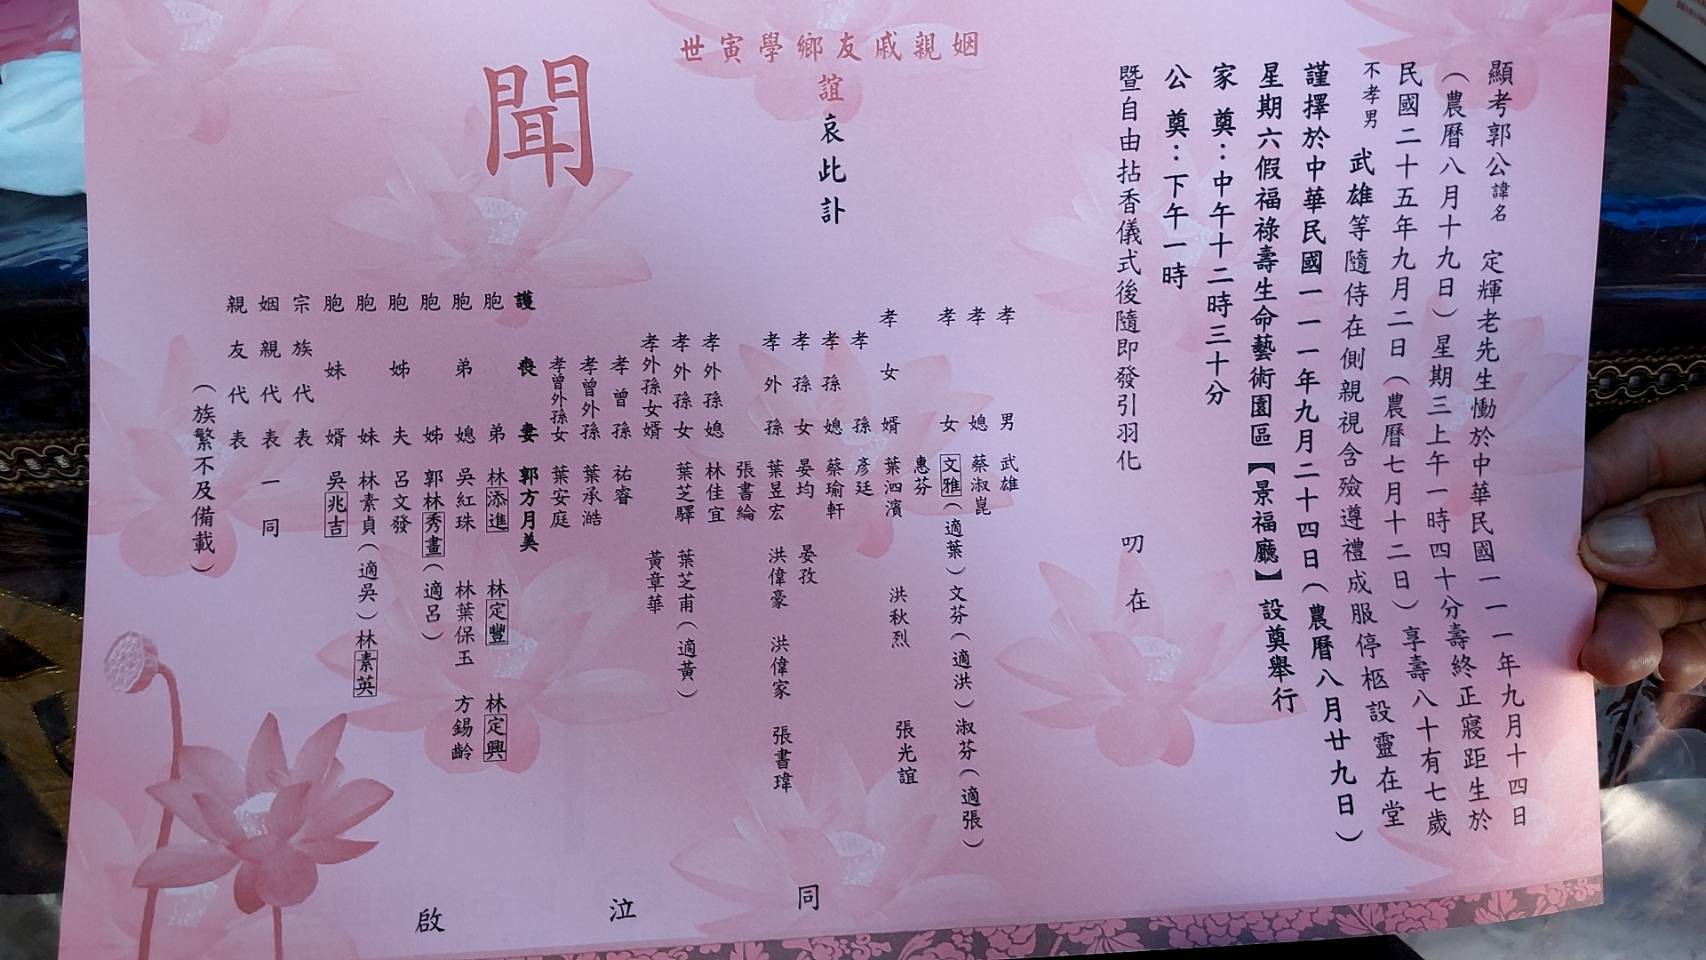 顯考郭公諱名 定輝老先生慟於中華民國一一一年九月十四日
（農曆八月十九日）星期三上午一時四十分壽終正寢距生於
民國二十五年九月二日（農曆七月十二日）享壽八十有七歲
不孝男 武雄等隨侍在側親視含殮遵禮成服停柩設靈在堂
謹擇於中華民國一一一年九月二十四日（農曆八月廿九日）
星期六假福祿壽生命藝術園區【景福廳】設奠舉行
家奠：中午十二時三十分
公奠：下午一時
暨自由拈香儀式後隨即發引羽化 叨在
姻親戚友鄉學寅世
誼 哀此訃
聞
孝男 武雄
孝媳 蔡淑崑
孝女 文雅（適葉）文芬（適洪）淑芬（適張）
惠芬
孝女婿 葉泗濱 洪秋烈 張光誼
孝孫 彥廷
孝孫媳 蔡瑜軒
孝孫女 晏均 晏孜
孝外孫 葉昱宏 洪偉豪 洪偉家 張書瑋
張書綸
孝外孫媳 林佳宜
孝外孫女 葉芝驛 葉芝甫（適黃）
孝外孫女婿 黃章華
孝曾孫 祐睿
孝曾外孫 葉承澔
孝曾外孫女 葉安庭
護喪妻 郭方月美
胞弟 林添進 林定豐 林定興
胞弟媳 吳紅珠 林葉保玉 方錫齡
胞姊 郭林秀畫（適呂）
胞姊夫 呂文發
胞妹 林素貞（適吳）林素英
胞妹婿 吳兆吉
宗族代表
姻親代表一同
親友代表
（族繁不及備載）
同泣啟